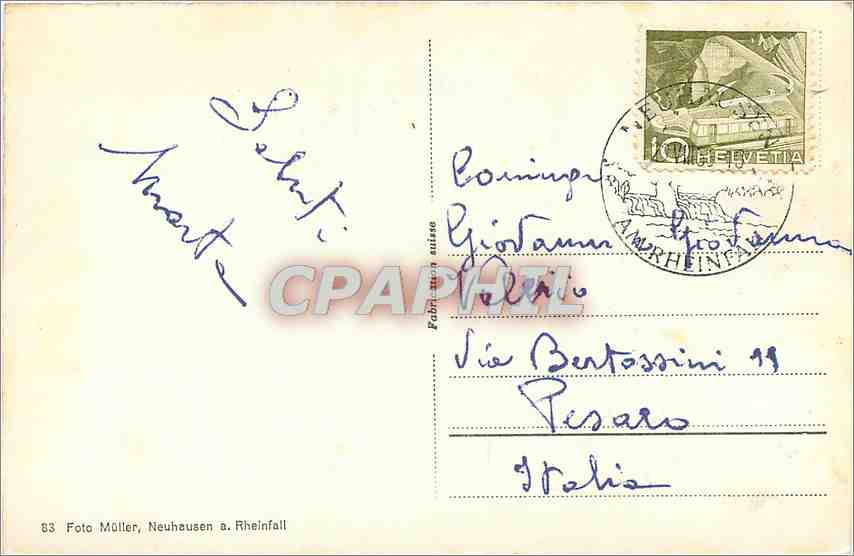 Saluti
Marta
Fabrication suisse
10 HELVETIA
NEUHAUSEN
AM RHEINFALL
Coniugi
Giovanni Giovanna
Valerio
Via Bertossini 11
Pesaro
Italia
CPAPHIL
83 Foto Müller, Neuhausen a. Rheinfall